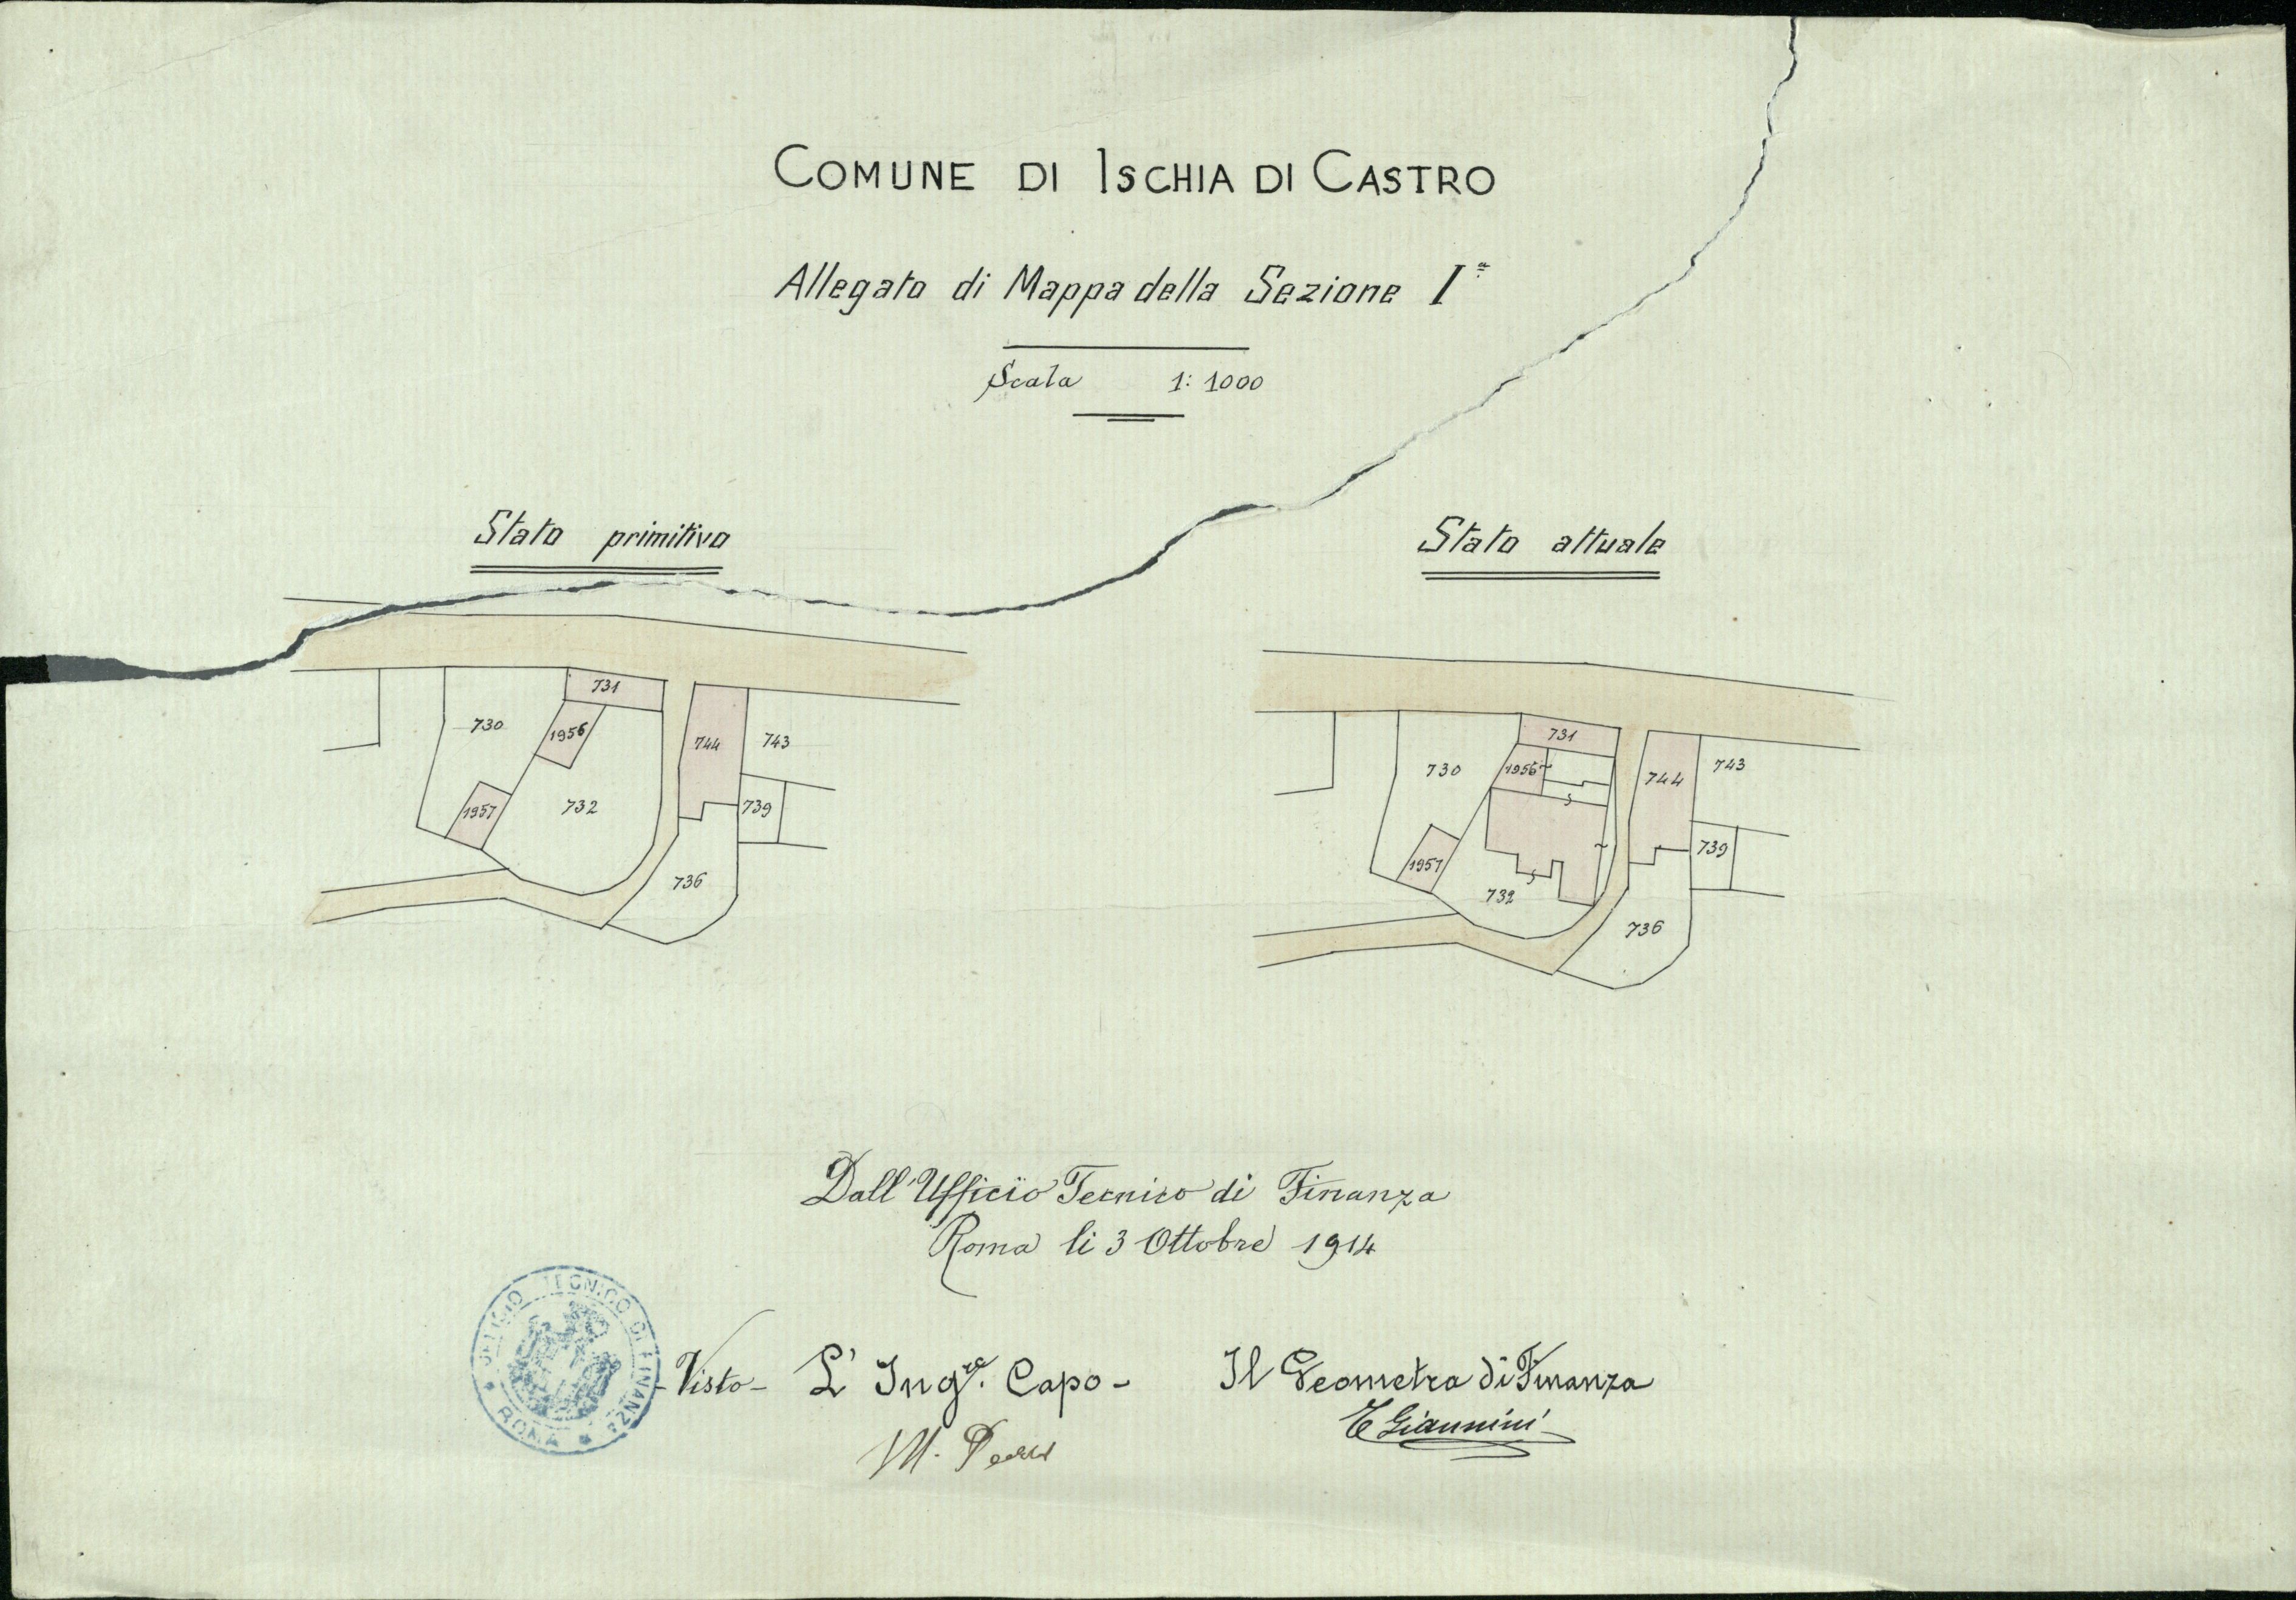 COMUNE DI ISCHIA DI CASTRO
Allegato di Mappa della Sezione Iª
Scala 1:1000
Stato primitivo
Stato attuale
731
730
1956
744
743
1957
732
739
736
731
730
1956
744
743
1957
732
739
736
Dall'Ufficio Tecnico di Finanza
Roma li 3 Ottobre 1914
UFFICIO TECNICO DI FINANZA
ROMA
-Visto- L'Ing.re Capo- Il Geometra di Finanza
M.
E Giannini